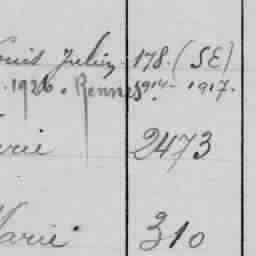 Louis Julien 178. (SE)
. 1926. Rennes 1914 - 1917.
rie 2473
Marie 310